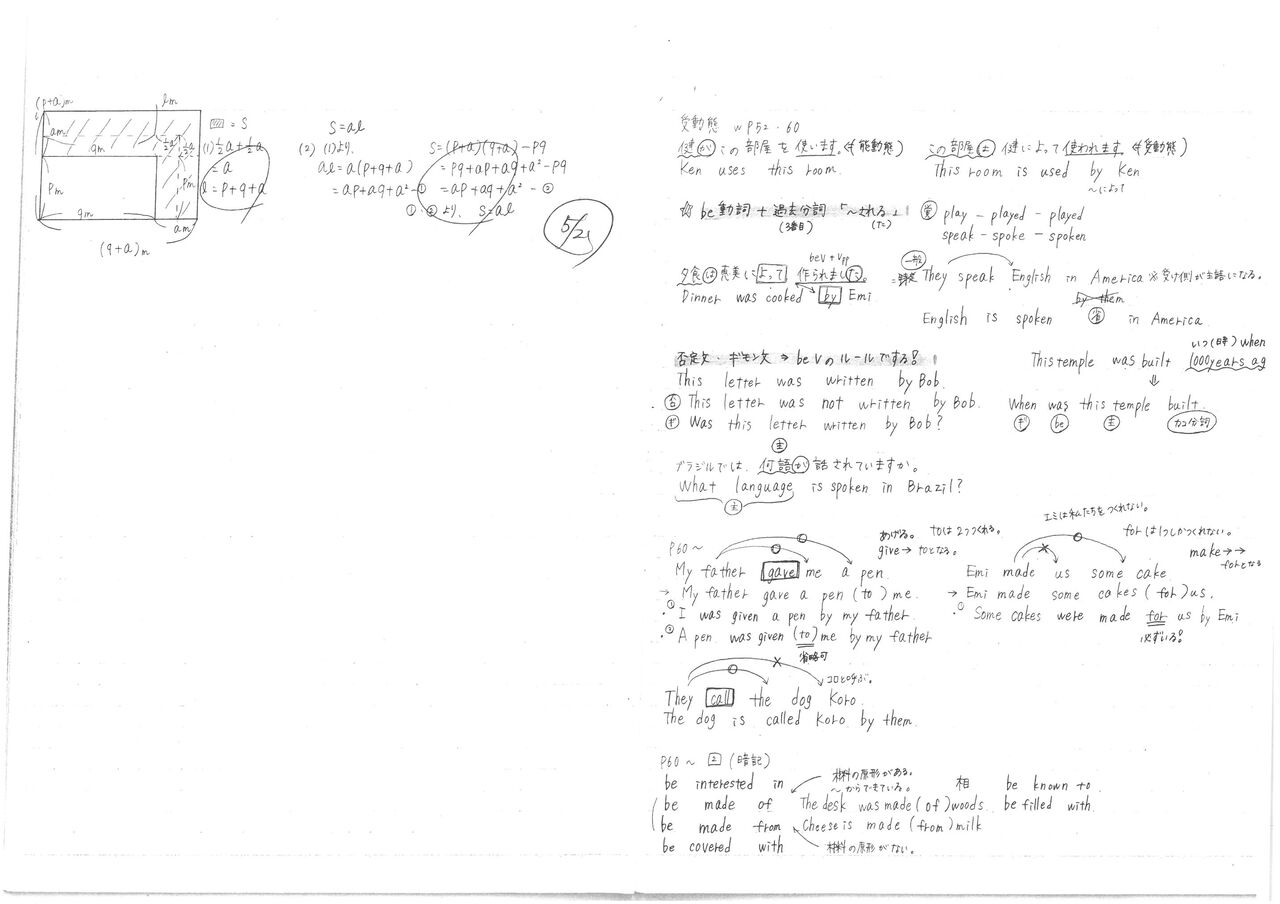 (p+a)m
lm
am
qm
pm
qm
am
(q+a)m
1/2a 1/2a
pm
▨ = S
(1) 1/2a+1/2a
=a
l=p+q+a
S=al
(2) (1)より、
al=a(p+q+a)
=ap+aq+a²-①
S=(p+a)(q+a)-pq
=pq+ap+aq+a²-pq
=ap+aq+a²-②
①、②より、S=al
受動態 w P52・60
健がこの部屋を使います。(⇐能動態)
Ken uses this room.
この部屋は健によって使われます(⇐受動態)
This room is used by Ken
〜によって
☆ be動詞 + 過去分詞「〜される」
(3番目) (た)
play - played - played
speak - spoke - spoken
beV + Vpp
夕食は恵美によって作られました。
Dinner was cooked by Emi.
一般
They speak English in America ※受け側が主語になる。
by them
English is spoken 省 in America
否定文・ギモン文 ⇒ beVのルールでする!
This letter was written by Bob.
否 This letter was not written by Bob.
ギ Was this letter written by Bob?
いつ(時) when
This temple was built 1000years ag
⇓
When was this temple built.
ギ be 主 カコ分詞
主
ブラジルでは、何語が話されていますか。
What language is spoken in Brazil?
主
P60〜
あげる。 toは2つつくれる。
give→toとなる。
My father gave me a pen.
→ My father gave a pen (to) me.
① I was given a pen by my father.
② A pen was given (to) me by my father
省略可
エミは私たちをつくれない。
forは1つしかつくれない。
make→→
forとなる
Emi made us some cake.
→ Emi made some cakes (for) us.
① Some cakes were made for us by Emi
必ずいる!
コロと呼ぶ。
They call the dog Koro.
The dog is called Koro by them.
P60〜 2 (暗記)
be interested in
材料の原形がある。
〜からできている。
be made of The desk was made (of) woods.
be made from Cheese is made (from) milk
be covered with 材料の原形がない。
be known to
be filled with.